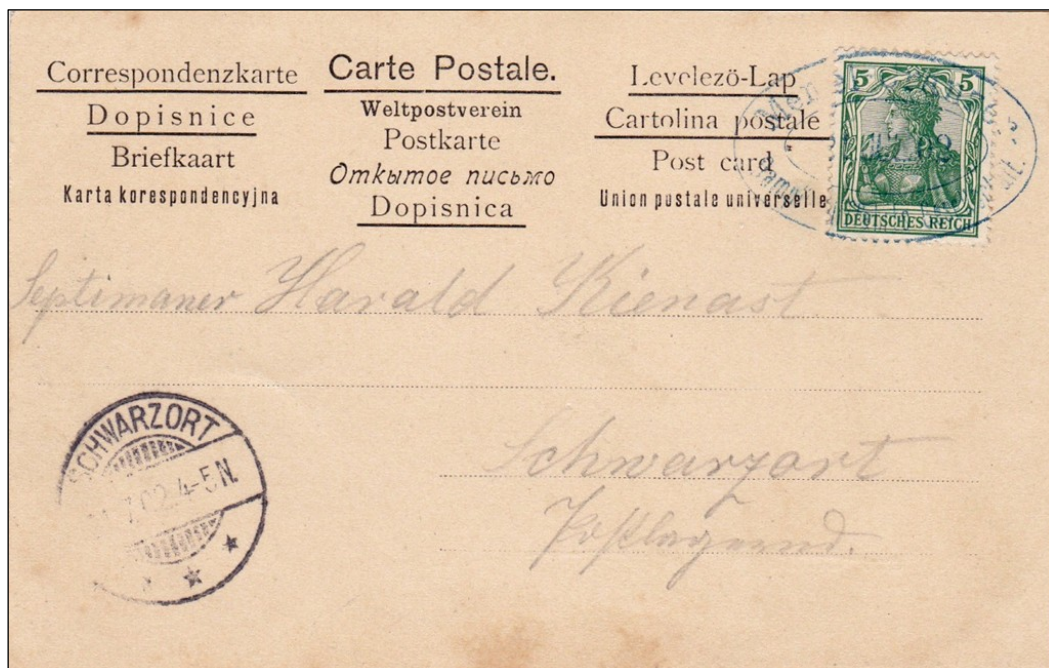 Correspondenzkarte
Dopisnice
Briefkaart
Karta korespondencyjna
Carte Postale.
Weltpostverein
Postkarte
Открытое письмо
Dopisnica
Levelező-Lap
Cartolina postale
Post card
Union postale universelle
5 5
DEUTSCHES REICH
Septimaner Harald Kienast
Schwarzort
Postlagernd.
SCHWARZORT
7.02.4-5N.